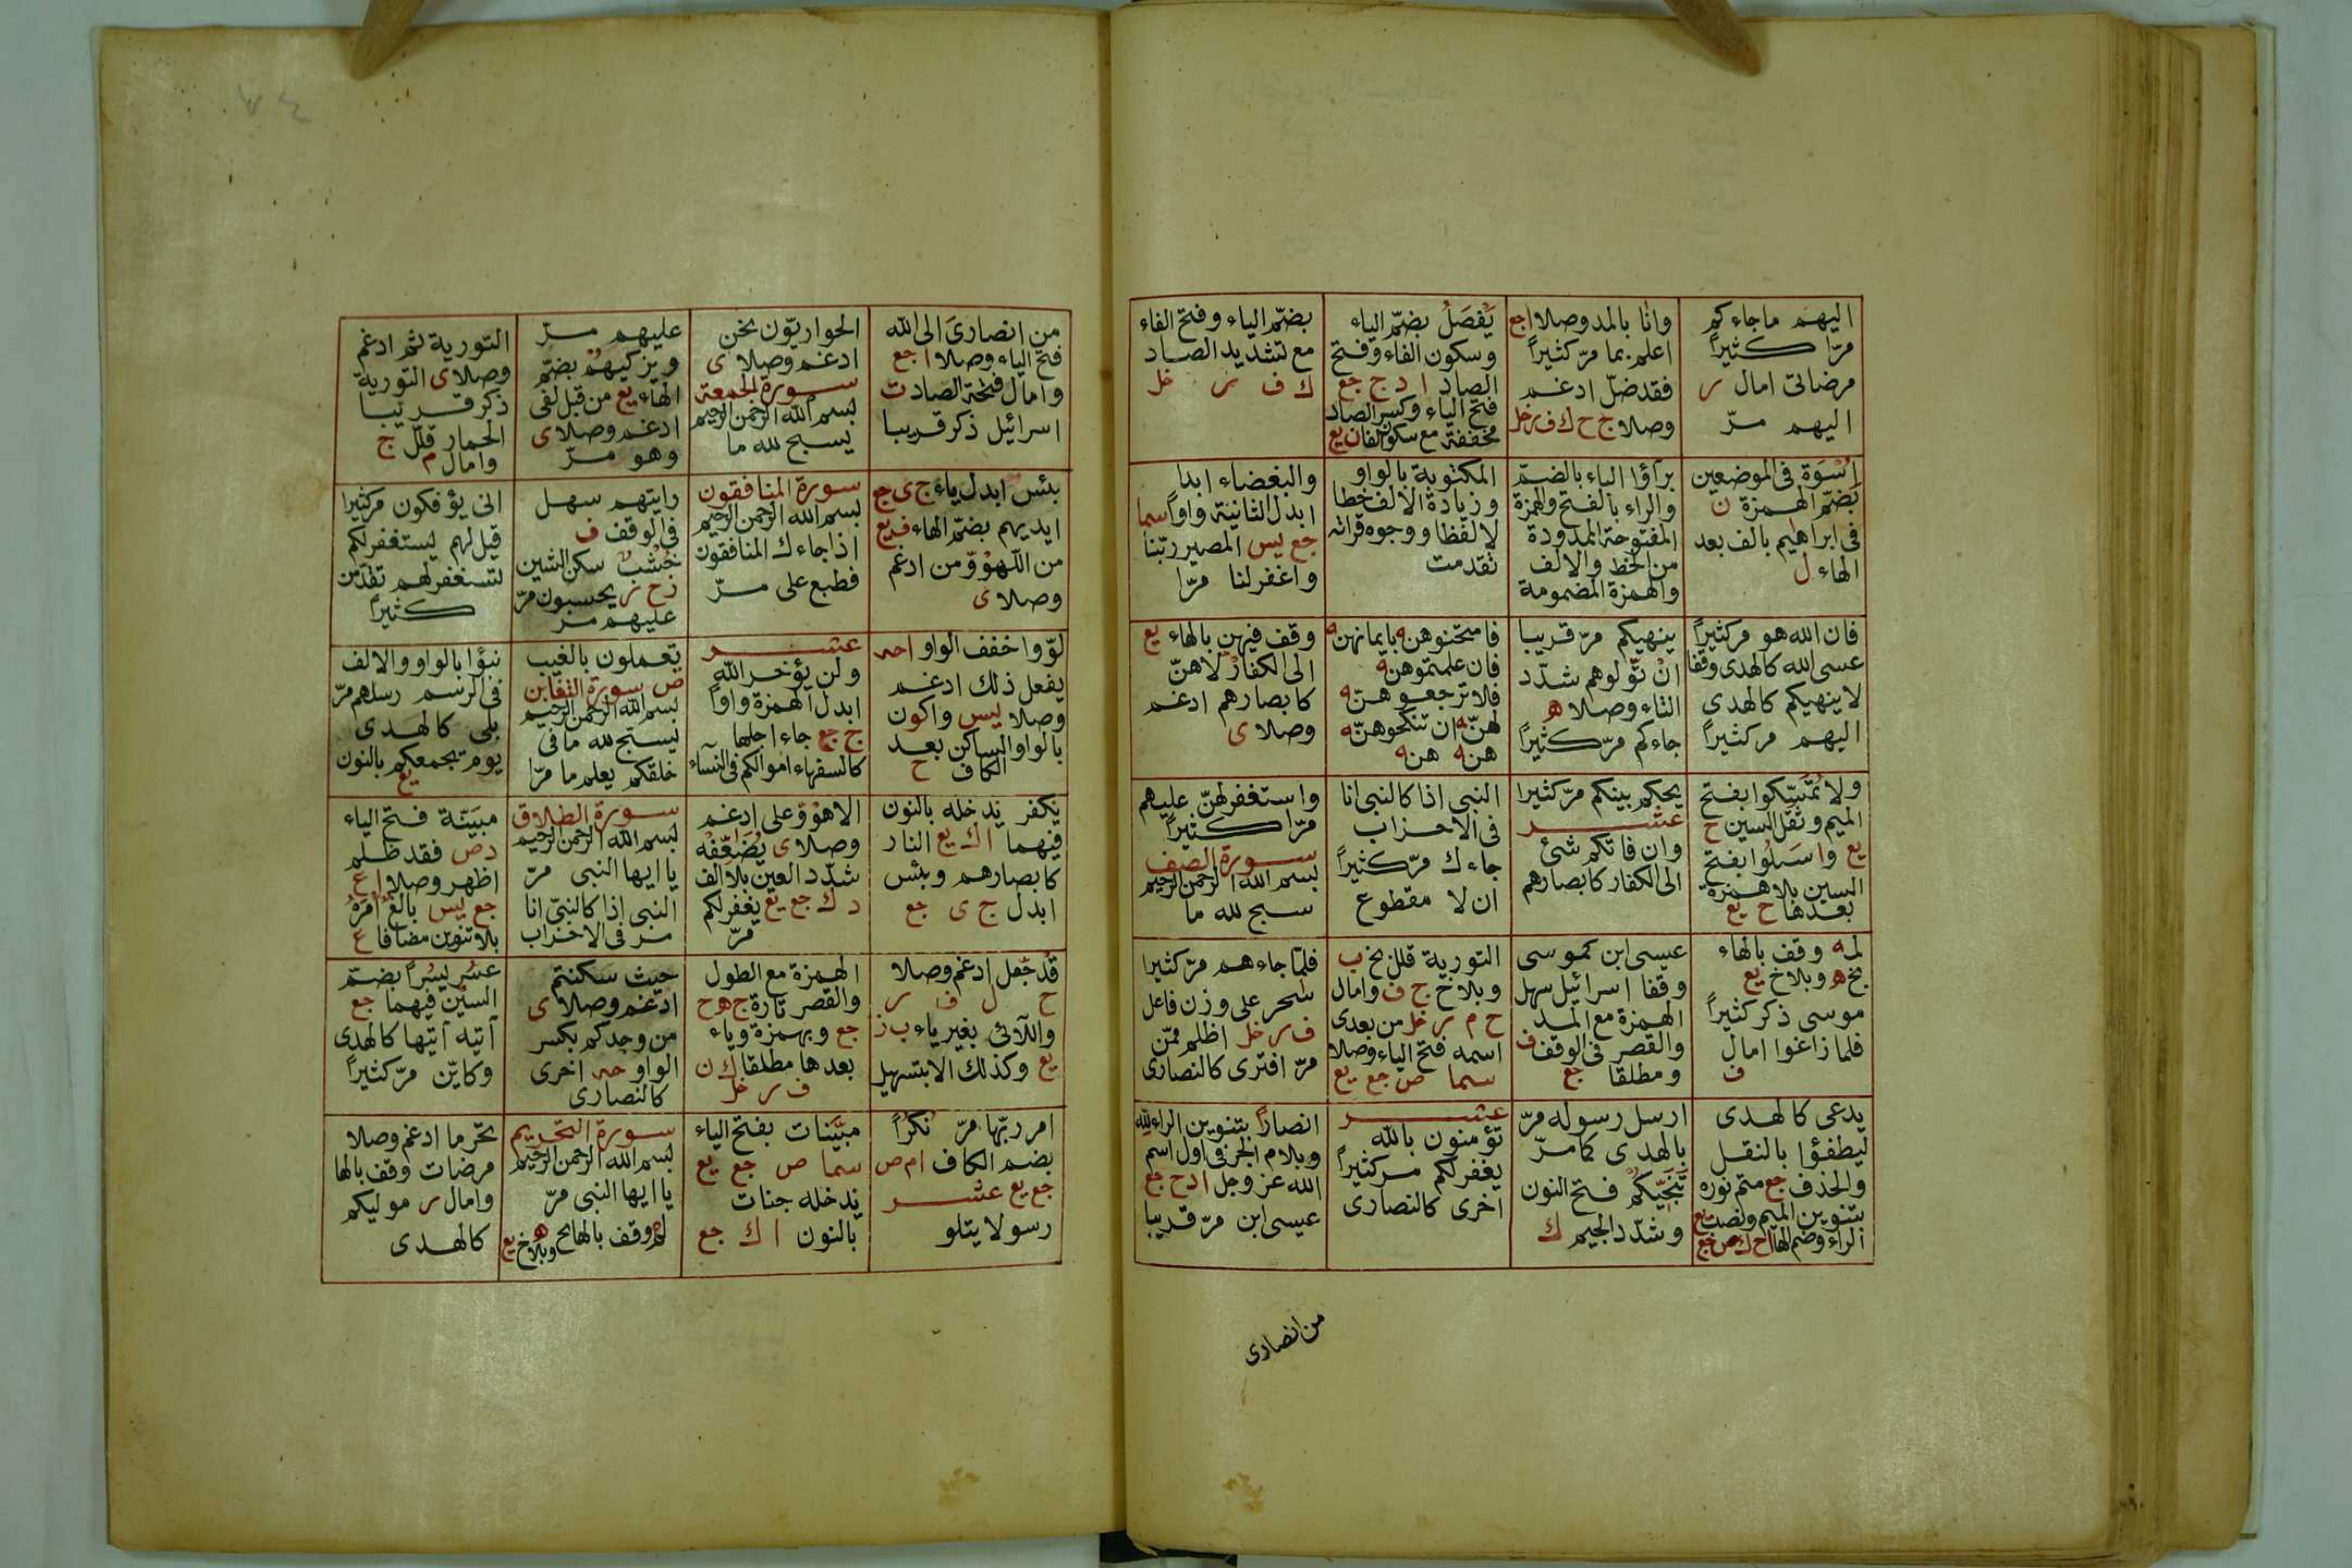 اليهم ماجاءكم
مرّا كثيراً
مرضاتى امال ر
اليهم مرّ
وانا بالمد وصلا ا جع
اعلم بما مرّ كثيراً
فقد ضلّ ادغم
وصلا ج ح ك ف ر خل
يُفْصَلُ بضمّ الياء
وسكون الفاء وفتح
الصاد ا د ج جع
فتح الياء وكسر الصاد
مخففة مع سكون الفا ن يع
بضمّ الياء وفتح الفاء
مع تشديد الصاد
ك ف ر خل
اُسْوَة فى الموضعين
بضمّ الهمزة ن
فى ابراهيم بالف بعد
الهاء ل
برآؤا الباء بالضمّ
والراء بالفتح والهمزة
المفتوحة الممدودة
من الخط والالف
والهمزة المضمومة
المكتوبة بالواو
وزيادة الالف خطا
لا لفظا ووجوه قراته
تقدمت
والبغضاء ابدا
ابدل الثانية واواً سما
جع يس المصير ربّنا
واغفر لنا مرّا
فان الله هو مر كثيراً
عسى الله كالهدى وقفا
لا ينهيكم كالهدى
اليهم مر كثيراً
ينهيكم مرّ قريبا
انْ تّوَلوهم شدّد
التاء وصلا ه
جاءكم مرّ كثيراً
فامتحنوهن ه بايمانهن ه
فان علمتموهن ه
فلا ترجعوهنّ ه
لهنّ ه ان تنكحوهنّ ه
هن ه هن ه
وقف فيهن بالهاء يع
الى الكفار لا هنّ
كابصارهم ادغم
وصلا ى
ولا تُمَسِّكوا بفتح
الميم وثقل السين ح
يع واسَلُوا بفتح
السين بلا همزة
بعدها ح يع
يحكم بينكم مرّ كثيرا
عشر
وان فاتكم شئ
الى الكفار كابصارهم
النبى اذا كالنبى انا
فى الاحزاب
جاءك مرّ كثيراً
ان لا مقطوع
واستغفر لهنّ عليهم
مرّا كثيراً
سورة الصف
بسم الله الرحمن الرحيم
سبح لله ما
لمه وقف بالهاء
بخ ه وبلاخ يع
موسى ذكر كثيراً
فلما زاغوا امال
ف
عيسى ابن كموسى
وقفا اسرائيل سهل
الهمزة مع المد
والقصر فى الوقف ف
ومطلقا جع
التورية قلل بخ ب
وبلاخ ج ف وامال
ح م ر خل من بعدى
اسمه فتح الياء وصلا
سما ص جع يع
فلمّا جاءهم مرّ كثيرا
سٰحر على وزن فاعل
ف ر خل اظلم ممّن
مرّ افترى كالنصارى
يدعى كالهدى
ليطفؤا بالنقل
والحذف جع متم نوره
بتنوين الميم ونصب يع
الراء وضم الها ا ح ك ص جع
ارسل رسوله مرّ
بالهدى كما مرّ
تُنَجِّيكُمْ فتح النون
وشدّد الجيم ك
عشر
تؤمنون بالله
يغفر لكم مر كثيراً
اخرى كالنصارى
انصاراً بتنوين الراء لله
وبلام الجر فى اول اسم
الله عز وجل ا د ح جع
عيسى ابن مرّ قريبا
من انصارى
من انصارىَ الى الله
فتح الياء وصلا ا جع
وامال فتحة الصاد ت
اسرائيل ذكر قريبا
الحواريّون نحن
ادغم وصلا ى
سورة الجمعة
بسم الله الرحمن الرحيم
يسبح لله ما
عليهم مرّ
ويزكيهُمْ بضمّ
الهاء يع من قبل لفى
ادغم وصلا ى
وهو مرّ
التورية ثم ادغم
وصلا ى التورية
ذكر قريبا
الحمار قلّل ج
وامال م
بئس ابدل ياء ج ى جع
ايديهم بضمّ الهاء ف يع
من اللهوْ وّمن ادغم
وصلا ى
سورة المنافقون
بسم الله الرحمن الرحيم
اذا جاءك المنافقون
فطبع على مرّ
رايتهم سهل
فى الوقف ف
خُشْبٌ سكن الشين
ز ح ر يحسبون مرّ
عليهم مرّ
انى يؤفكون مر كثيرا
قيل لهم يستغفر لكم
لتستغفر لهم تقدّمن
كثيراً
لوّوا خفف الواو ا حه
يفعل ذلك ادغم
وصلا يس واكون
بالواو الساكن بعد
الكاف ح
عشر
ولن يؤخر الله
ابدل الهمزة واواً
ج جع جاء اجلها
كالسفهاء اموالكم فى النسآء
تعملون بالغيب
ص سورة التغابن
بسم الله الرحمن الرحيم
يسبح لله ما فى
خلقكم يعلم ما مرّا
نبؤا بالواو والالف
فى الرسم رسلهم مرّ
بلى كالهدى
يوم نجمعكم بالنون
يع
نكفر ندخله بالنون
فيهما ا ك يع النار
كابصارهم وبئس
ابدل ج ى جع
الاهوْ وّعلى ادغم
وصلا ى يُضَعِّفْه
شدّد العين بلا الف
د ك جع يع يغفر لكم
مرّ
سورة الطلاق
بسم الله الرحمن الرحيم
يا ايها النبى مرّ
النبى اذا كالنبىّ انا
مر فى الاحزاب
مبيَّنة فتح الياء
د ص فقد ظلم
اظهر وصلا ا ع
جع يس بالغٌ امرَهُ
بلا تنوين مضافا ع
قد جعل ادغم وصلا
ح ل ف ر
واللآئى بغير ياء ب ز
يع وكذلك الا بتسهيل
الهمزة مع الطول
والقصر تارة ج ه ح
جع وبهمزة وياء
بعدها مطلقا ك ن
ف ر خل
حيث سكنتم
ادغم وصلا ى
من وجدكم بكسر
الواو حه اخرى
كالنصارى
عسُر يسُراً بضمّ
السين فيهما جع
آتيه آتيها كالهدى
وكايّن مرّ كثيراً
امر ربّها مرّ نُكُراً
بضم الكاف ا م ص
جع يع عشر
رسولا يتلو
مبيَّنات بفتح الياء
سما ص جع يع
ندخله جنات
بالنون ا ك جع
سورة التحريم
بسم الله الرحمن الرحيم
يا ايها النبى مرّ
لم ه وقف بالها بخ ه وبلاخ يع
تحرّم ما ادغم وصلا
مرضات وقف بالها
وامال ر موليكم
كالهدى